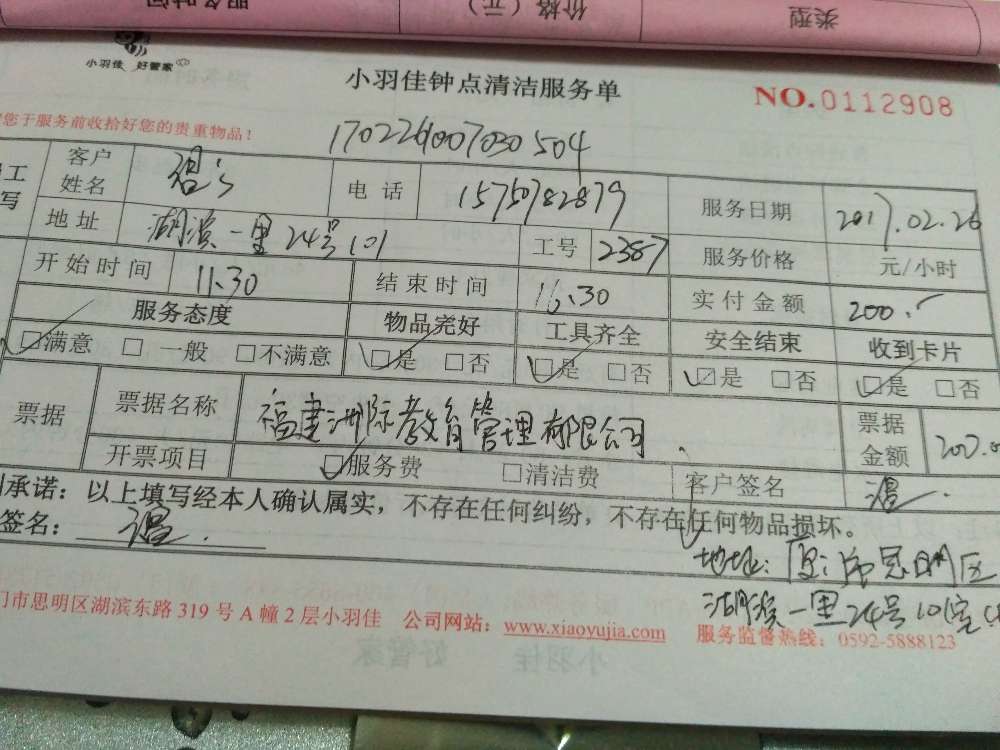 服务时间 价格（元） 类型
小羽佳 好管家
小羽佳钟点清洁服务单
NO.0112908
您于服务前收拾好您的贵重物品！
170226100703050​4
工 客户姓名 电话 15750782879 服务日期 2017.02.26
写 地址 湖滨一里24号101 工号 2387 服务价格 元/小时
开始时间 11.30 结束时间 16.30 实付金额 200.
服务态度 物品完好 工具齐全 安全结束 收到卡片
□满意 □一般 □不满意 □是 □否 □是 □否 ☑是 □否 □是 □否
票据 票据名称 福建洲际教育管理有限公司. 票据金额
开票项目 □服务费 □清洁费 客户签名 温.
承诺：以上填写经本人确认属实，不存在任何纠纷，不存在任何物品损坏。
签名： 温.
地址：厦门市思明区
湖滨一里24号101室
门市思明区湖滨东路319号A幢2层小羽佳 公司网站：www.xiaoyujia.com 服务监督热线：0592-5888123